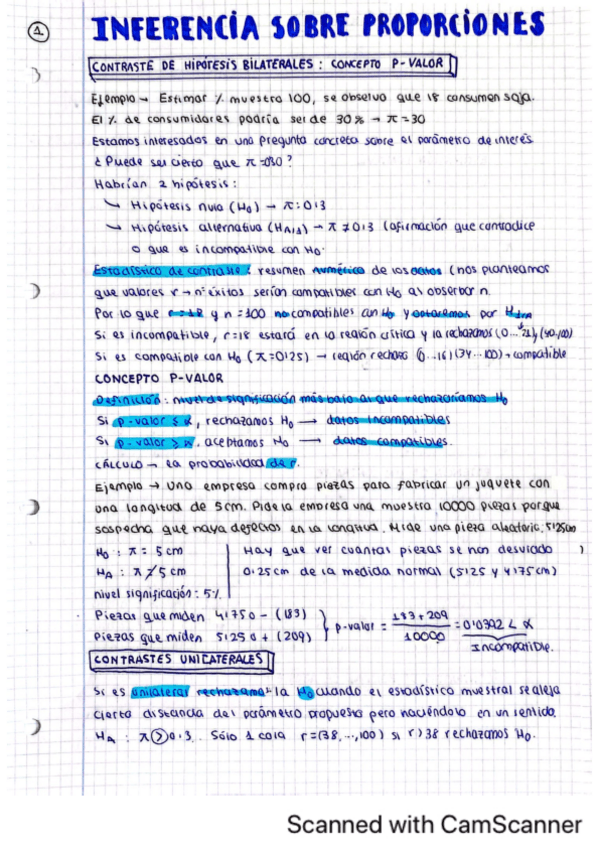 1.
INFERENCIA SOBRE PROPORCIONES
CONTRASTE DE HIPÓTESIS BILATERALES: CONCEPTO P-VALOR
Ejemplo → Estimar % muestra 100, se observo que 18 consumen soja.
El % de consumidores podría ser de 30% → π = 30
Estamos interesados en una pregunta concreta sobre el parámetro de interés
¿Puede ser cierto que π = 0'30?
Habrían 2 hipótesis:
↳ Hipótesis nula (H0) → π: 0'3
↳ Hipótesis alternativa (HA/1) → π ≠ 0'3 (afirmación que contradice
o que es incompatible con H0.
Estadístico de contraste: resumen numérico de los datos (nos planteamos
que valores r → nº éxitos serían compatibles con H0 al observar n.
Por lo que r = 18 y n = 100 no compatibles con H0 y optaremos por
Si es incompatible, r = 18 estará en la región crítica y la rechazamos (0... 21) (40..100)
Si es compatible con H0 (π = 0'25) → región rechazo (..16) (34...100) → compatible
CONCEPTO P-VALOR
Definición: nivel de significación más bajo al que rechazaríamos H0
Si p-valor ≤ α, rechazamos H0 → datos incompatibles
Si p-valor > α, aceptamos H0 → datos compatibles.
CÁLCULO → la probabilidad de r.
Ejemplo → Una empresa compra piezas para fabricar un juguete con
una longitud de 5cm. Pide la empresa una muestra 10000 piezas porque
sospecha que haya defectos en la longitud. Mide una pieza aleatoria; 5'2500
H0 : π = 5 cm
HA : π ≠ 5 cm
nivel significación: 5%
Hay que ver cuantas piezas se han desviado
0'25cm de la medida normal (5'25 y 4'75cm)
Piezas que miden 4'750 - (183)
Piezas que miden 5'250 + (209)
p-valor = 183 + 209 / 10000 = 0'0392 < α
Incompatible.
CONTRASTES UNILATERALES
Si es unilateral rechazamos la H0 cuando el estadístico muestral se aleja
cierta distancia del parámetro propuesto pero haciéndolo en un sentido.
HA : π > 0'3. Sólo 1 cola r = (38,..,100) si r > 38 rechazamos H0.
Scanned with CamScanner